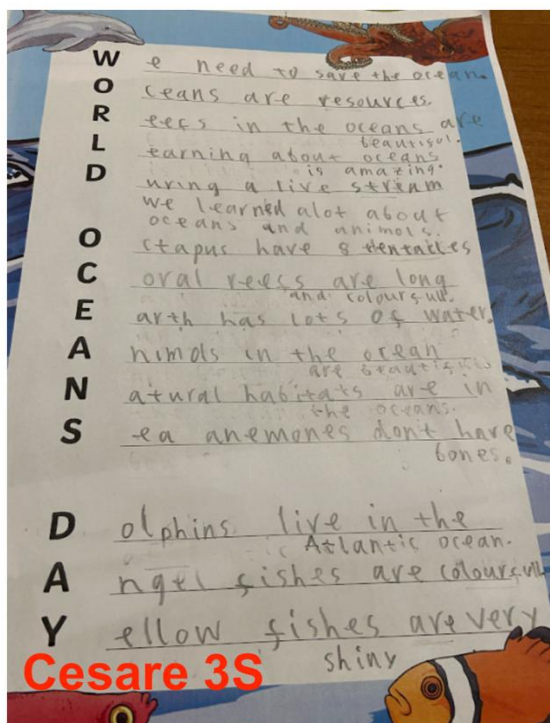 We need to save the ocean.
Oceans are resources.
Reefs in the oceans are
beautiful.
Learning about oceans
is amazing.
During a live stream
we learned alot about
oceans and animols.
Octapus have 8 tentacles
Coral reefs are long
and colourfull.
Earth has lots of water.
Animols in the ocean
are beautiful
Natural habitats are in
the oceans.
Sea anemones don't have
bones.
Dolphins live in the
Atlantic ocean.
Angel fishes are colourfull
Yellow fishes are very
shiny
Cesare 3S